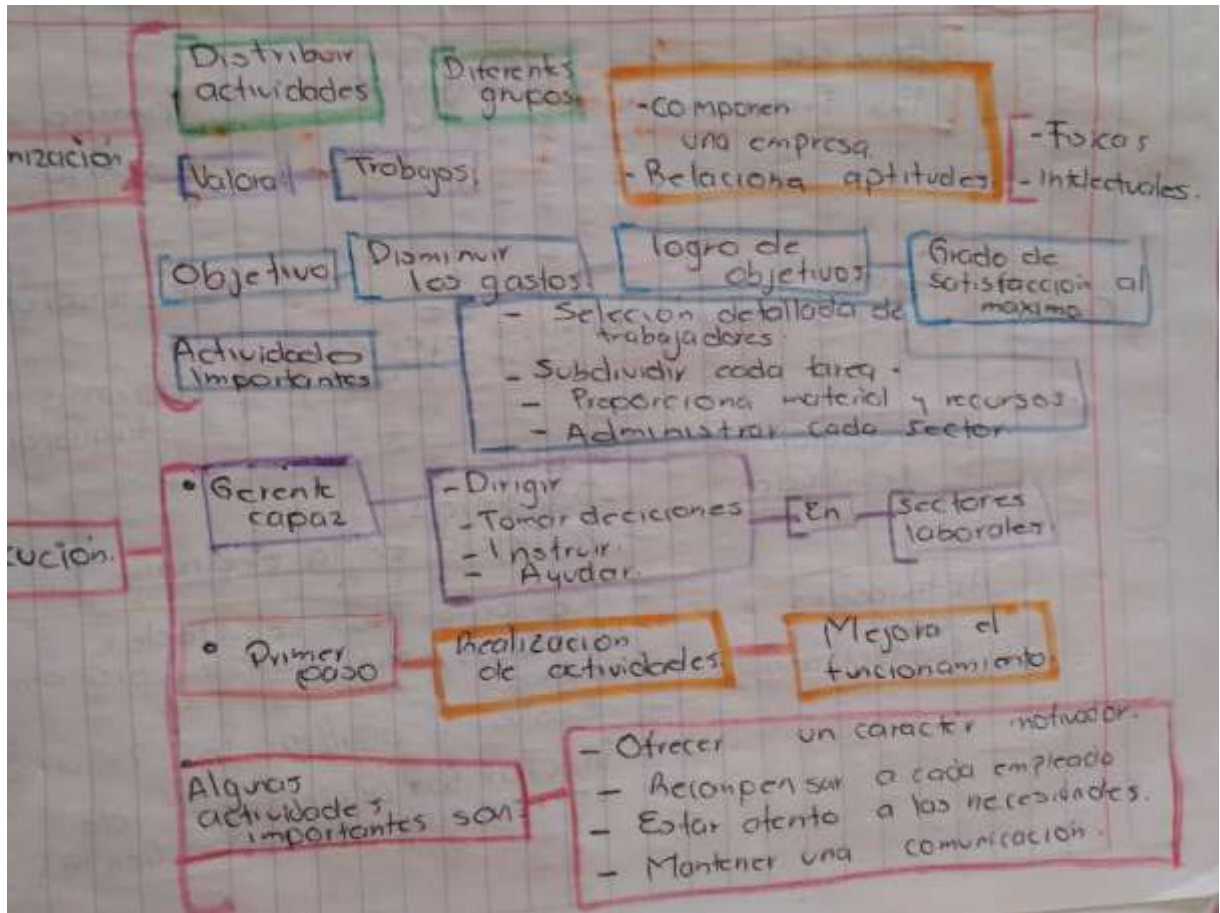 nización
Distribuir
actividades
Diferentes
grupos
-Componen
una empresa
-Relaciona aptitudes
-Fisicas
-Intelectuales.
Valora
Trabajos
Objetivo
Disminuir
los gastos
logro de
objetivos
Grado de
satisfaccion al
maximo
Actividades
importantes
- Selecion detallada de
trabajadores.
- Subdividir cada tarea.
- Proporciona material y recursos
- Administrar cada sector
cución.
• Gerente
capaz
-Dirigir
-Tomar deciciones
- Instruir.
- Ayudar.
En
sectores
laborales.
• Primer
paso
Realizacion
de actividades.
Mejora el
funcionamiento.
• Algunas
actividades
importantes son
- Ofrecer un caracter motivador.
- Recompensar a cada empleado
- Estar atento a las necesidades.
- Mantener una comunicacion.